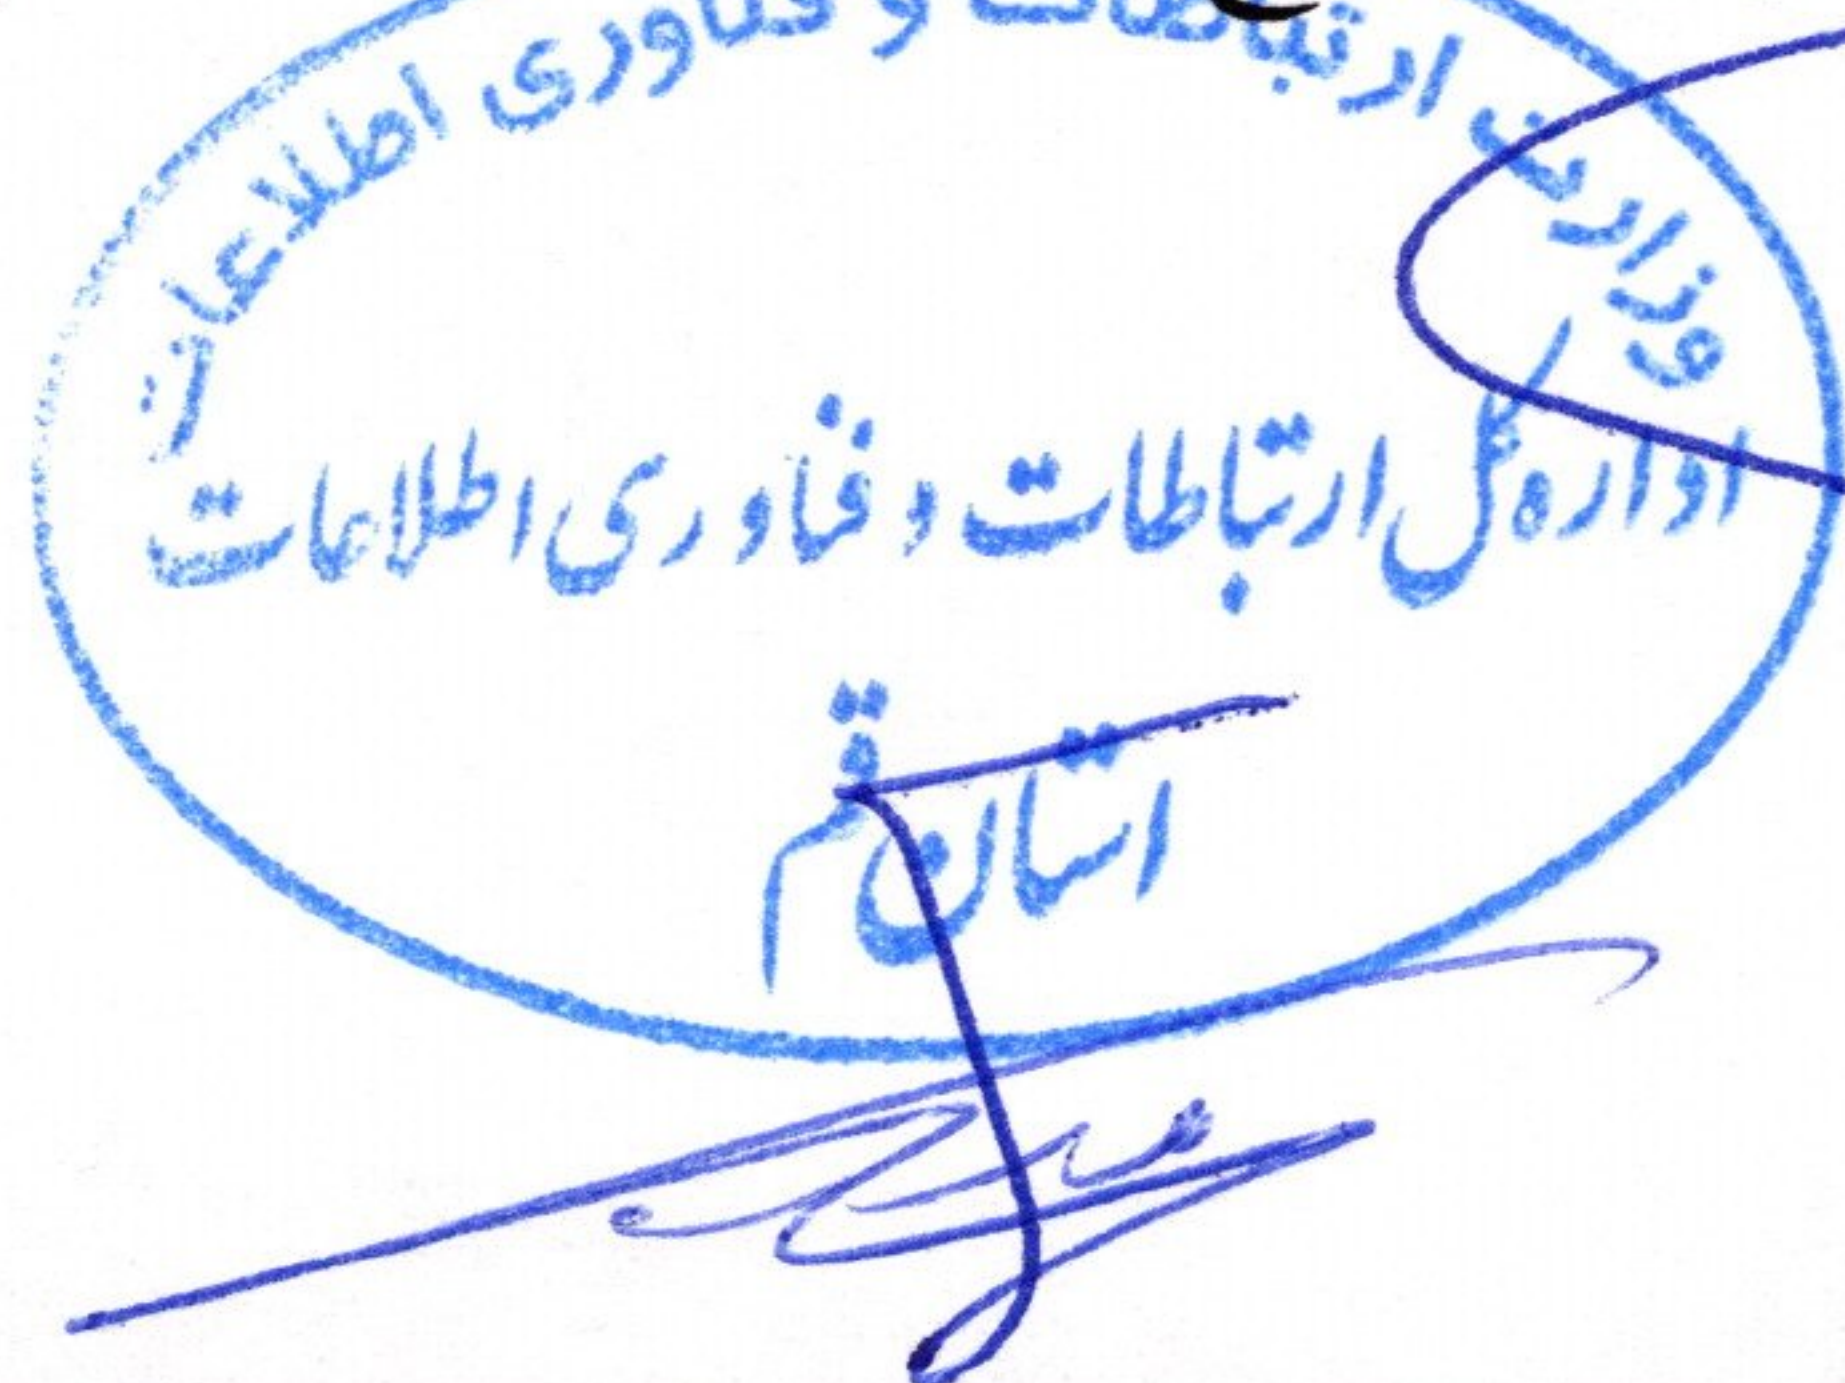 وزارت ارتباطات و فناوری اطلاعات
اداره کل ارتباطات و فناوری اطلاعات
استان قم